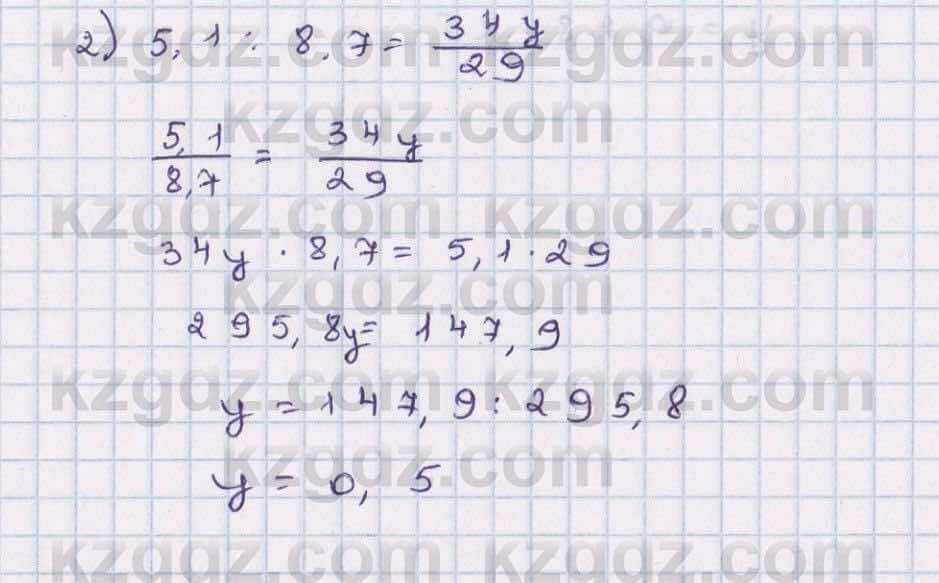 2) 5,1 : 8,7 = 34y/29
5,1/8,7 = 34y/29
34y · 8,7 = 5,1 · 29
295,8y = 147,9
y = 147,9 : 295,8
y = 0,5
kzgdz.com kzgdz.com
kzgdz.com
kzgdz.com kzgdz.com
kzgdz.com
kzgdz.com kzgdz.com
kzgdz.com
kzgdz.com kzgdz.com